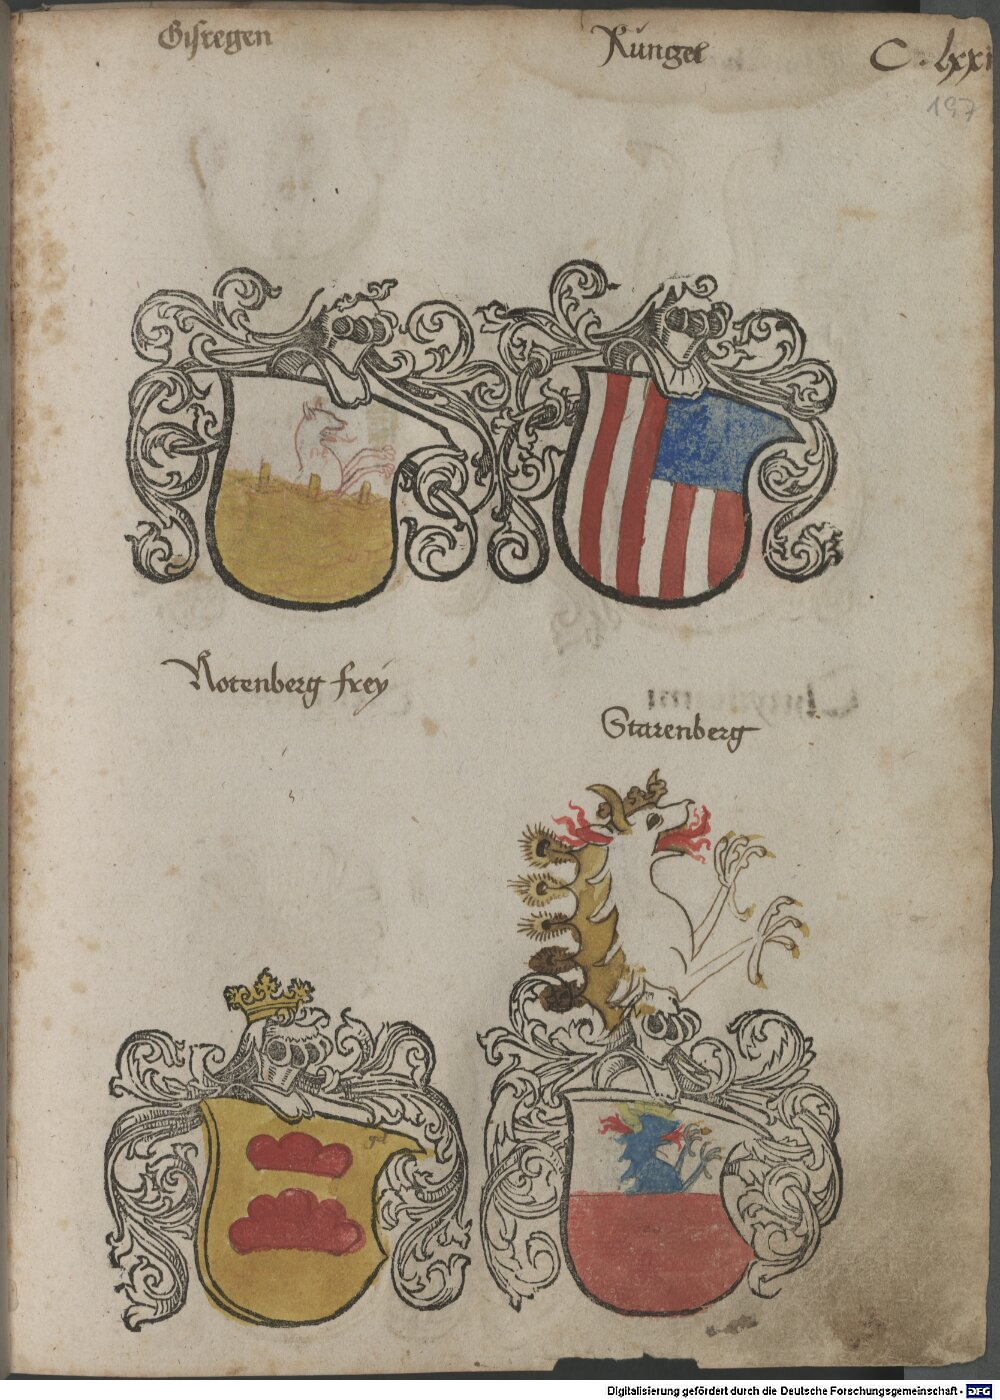 Gisregen
Rüngel
C. lxxi
197
Rotenberg frey
Starenberg
gel
Digitalisierung gefördert durch die Deutsche Forschungsgemeinschaft - DFG